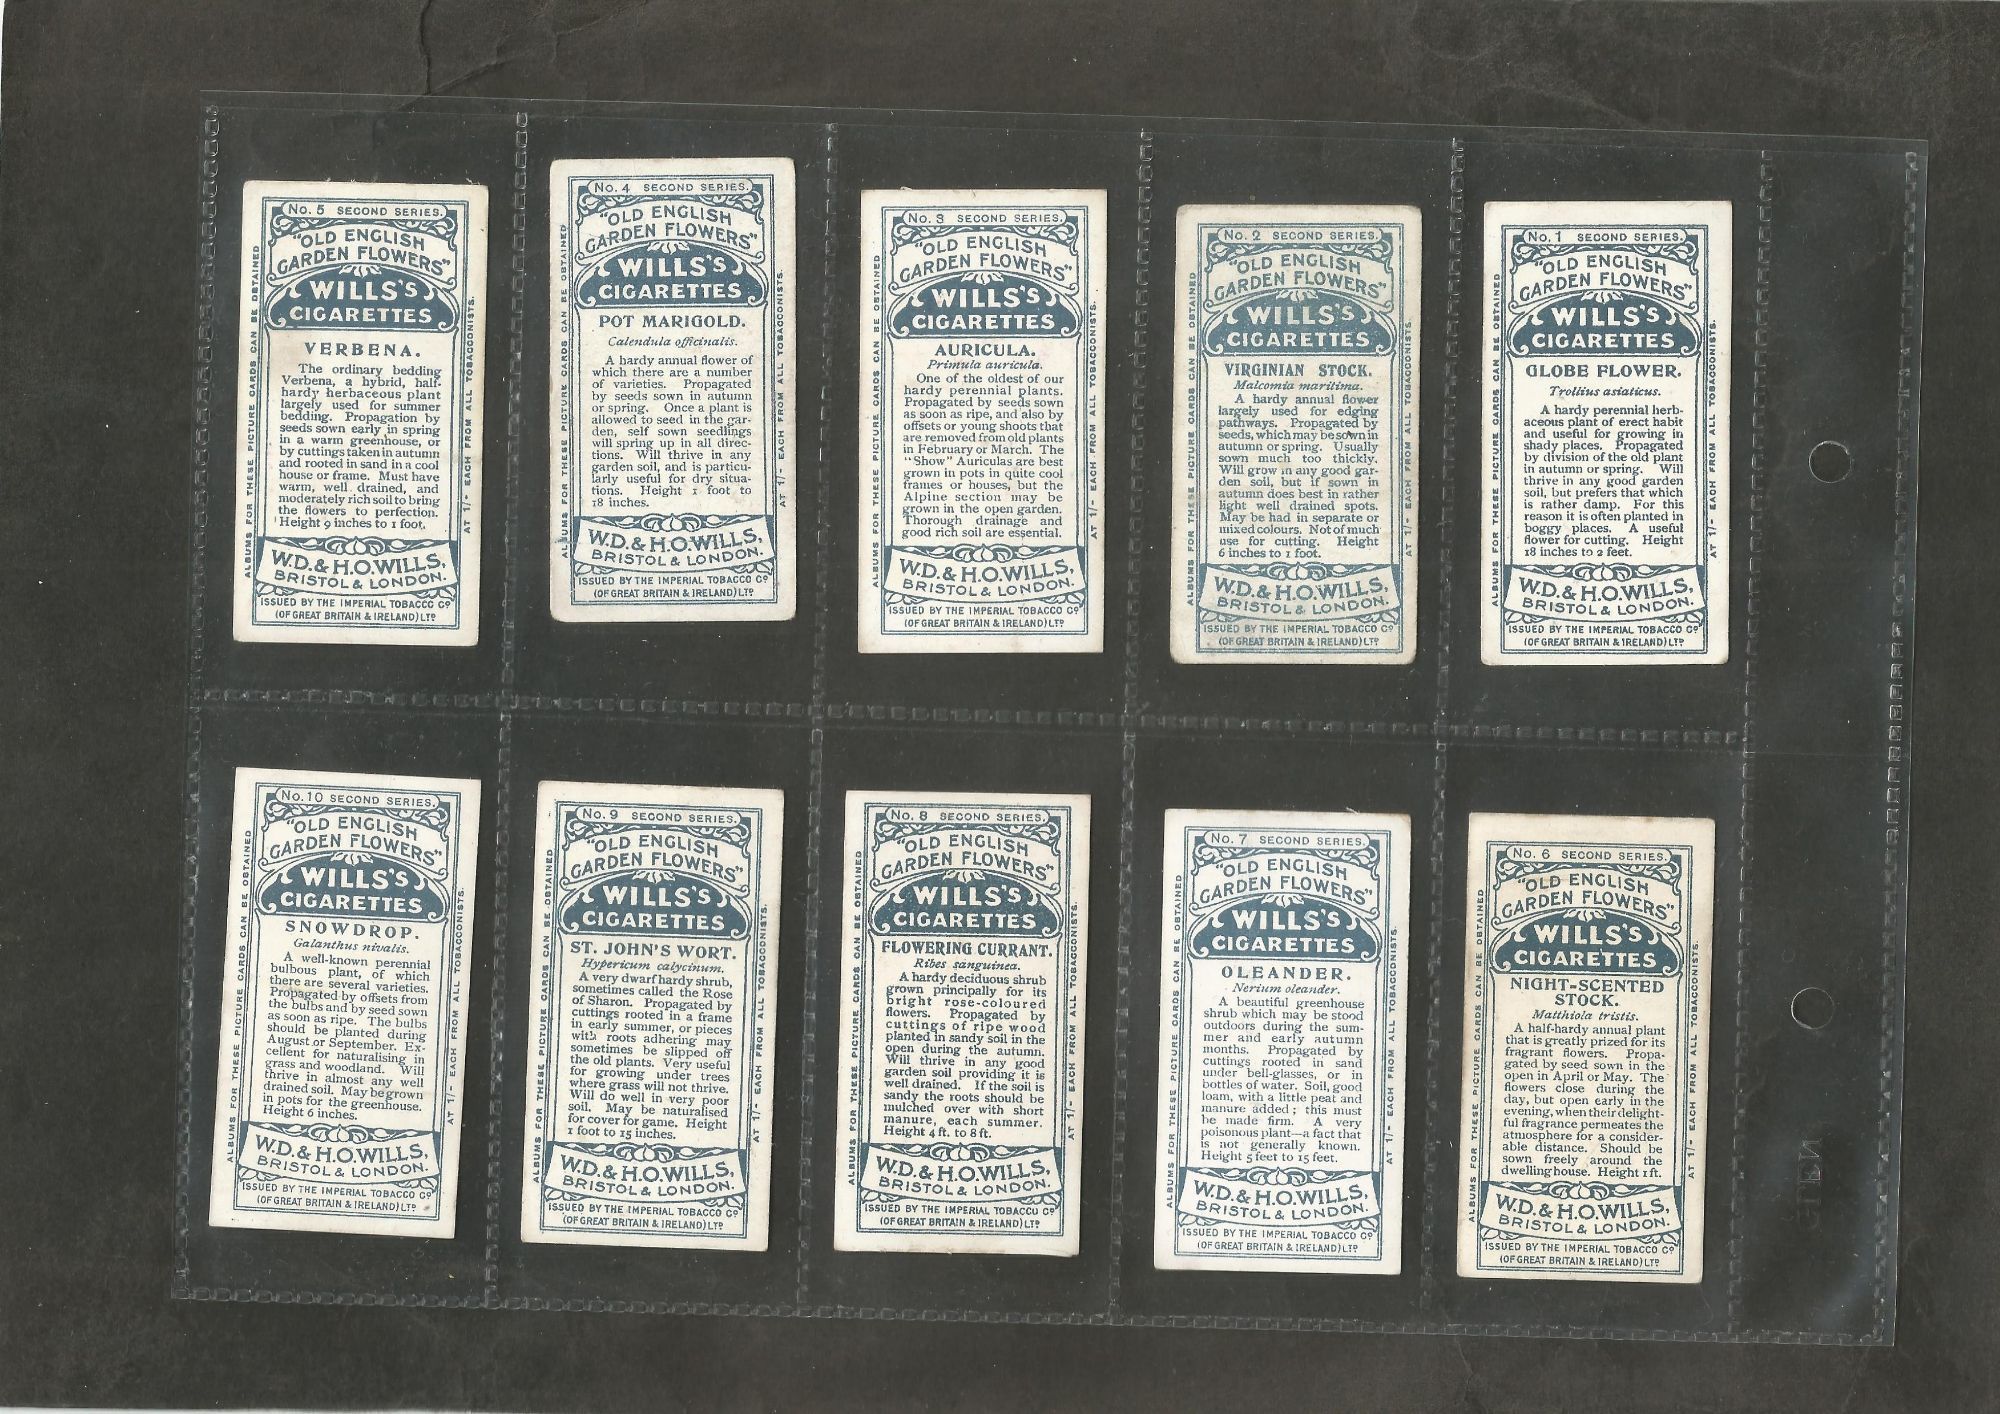 No. 5 SECOND SERIES.
"OLD ENGLISH
GARDEN FLOWERS"
WILLS'S
CIGARETTES
VERBENA.
The ordinary bedding
Verbena, a hybrid, half-
hardy herbaceous plant
largely used for summer
bedding. Propagation by
seeds sown early in spring
in a warm greenhouse, or
by cuttings taken in autumn
and rooted in sand in a cool
house or frame. Must have
warm, well drained, and
moderately rich soil to bring
the flowers to perfection.
Height 9 inches to 1 foot.
W.D. & H.O. WILLS,
BRISTOL & LONDON.
ISSUED BY THE IMPERIAL TOBACCO Co
(OF GREAT BRITAIN & IRELAND) LTD
ALBUMS FOR THESE PICTURE CARDS CAN BE OBTAINED
AT 1/- EACH FROM ALL TOBACCONISTS.
No. 4 SECOND SERIES.
"OLD ENGLISH
GARDEN FLOWERS"
WILLS'S
CIGARETTES
POT MARIGOLD.
Calendula officinalis.
A hardy annual flower of
which there are a number
of varieties. Propagated
by seeds sown in autumn
or spring. Once a plant is
allowed to seed in the gar-
den, self sown seedlings
will spring up in all direc-
tions. Will thrive in any
garden soil, and is particu-
larly useful for dry situa-
tions. Height 1 foot to
18 inches.
W.D. & H.O. WILLS,
BRISTOL & LONDON.
ISSUED BY THE IMPERIAL TOBACCO Co
(OF GREAT BRITAIN & IRELAND) LTD
ALBUMS FOR THESE PICTURE CARDS CAN BE OBTAINED
AT 1/- EACH FROM ALL TOBACCONISTS.
No. 3 SECOND SERIES.
"OLD ENGLISH
GARDEN FLOWERS"
WILLS'S
CIGARETTES
AURICULA.
Primula auricula.
One of the oldest of our
hardy perennial plants.
Propagated by seeds sown
as soon as ripe, and also by
offsets or young shoots that
are removed from old plants
in February or March. The
"Show" Auriculas are best
grown in pots in quite cool
frames or houses, but the
Alpine section may be
grown in the open garden.
Thorough drainage and
good rich soil are essential.
W.D. & H.O. WILLS,
BRISTOL & LONDON.
ISSUED BY THE IMPERIAL TOBACCO Co
(OF GREAT BRITAIN & IRELAND) LTD
ALBUMS FOR THESE PICTURE CARDS CAN BE OBTAINED
AT 1/- EACH FROM ALL TOBACCONISTS.
No. 2 SECOND SERIES.
"OLD ENGLISH
GARDEN FLOWERS"
WILLS'S
CIGARETTES
VIRGINIAN STOCK.
Malcomia maritima.
A hardy annual flower
largely used for edging
pathways. Propagated by
seeds, which may be sown in
autumn or spring. Usually
sown much too thickly.
Will grow in any good gar-
den soil, but if sown in
autumn does best in rather
light well drained spots.
May be had in separate or
mixed colours. Not of much
use for cutting. Height
6 inches to 1 foot.
W.D. & H.O. WILLS,
BRISTOL & LONDON.
ISSUED BY THE IMPERIAL TOBACCO Co
(OF GREAT BRITAIN & IRELAND) LTD
ALBUMS FOR THESE PICTURE CARDS CAN BE OBTAINED
AT 1/- EACH FROM ALL TOBACCONISTS.
No. 1 SECOND SERIES.
"OLD ENGLISH
GARDEN FLOWERS"
WILLS'S
CIGARETTES
GLOBE FLOWER.
Trollius asiaticus.
A hardy perennial herb-
aceous plant of erect habit
and useful for growing in
shady places. Propagated
by division of the old plant
in autumn or spring. Will
thrive in any good garden
soil, but prefers that which
is rather damp. For this
reason it is often planted in
boggy places. A useful
flower for cutting. Height
18 inches to 2 feet.
W.D. & H.O. WILLS,
BRISTOL & LONDON.
ISSUED BY THE IMPERIAL TOBACCO Co
(OF GREAT BRITAIN & IRELAND) LTD
ALBUMS FOR THESE PICTURE CARDS CAN BE OBTAINED
AT 1/- EACH FROM ALL TOBACCONISTS.
No. 10 SECOND SERIES.
"OLD ENGLISH
GARDEN FLOWERS"
WILLS'S
CIGARETTES
SNOWDROP.
Galanthus nivalis.
A well-known perennial
bulbous plant, of which
there are several varieties.
Propagated by offsets from
the bulbs and by seed sown
as soon as ripe. The bulbs
should be planted during
August or September. Ex-
cellent for naturalising in
grass and woodland. Will
thrive in almost any well
drained soil. May be grown
in pots for the greenhouse.
Height 6 inches.
W.D. & H.O. WILLS,
BRISTOL & LONDON.
ISSUED BY THE IMPERIAL TOBACCO Co
(OF GREAT BRITAIN & IRELAND) LTD
ALBUMS FOR THESE PICTURE CARDS CAN BE OBTAINED
AT 1/- EACH FROM ALL TOBACCONISTS.
No. 9 SECOND SERIES.
"OLD ENGLISH
GARDEN FLOWERS"
WILLS'S
CIGARETTES
ST. JOHN'S WORT.
Hypericum calycinum.
A very dwarf hardy shrub,
sometimes called the Rose
of Sharon. Propagated by
cuttings rooted in a frame
in early summer, or pieces
with roots adhering may
sometimes be slipped off
the old plants. Very useful
for growing under trees
where grass will not thrive.
Will do well in very poor
soil. May be naturalised
for cover for game. Height
1 foot to 15 inches.
W.D. & H.O. WILLS,
BRISTOL & LONDON.
ISSUED BY THE IMPERIAL TOBACCO Co
(OF GREAT BRITAIN & IRELAND) LTD
ALBUMS FOR THESE PICTURE CARDS CAN BE OBTAINED
AT 1/- EACH FROM ALL TOBACCONISTS.
No. 8 SECOND SERIES.
"OLD ENGLISH
GARDEN FLOWERS"
WILLS'S
CIGARETTES
FLOWERING CURRANT.
Ribes sanguinea.
A hardy deciduous shrub
grown principally for its
bright rose-coloured
flowers. Propagated by
cuttings of ripe wood
planted in sandy soil in the
open during the autumn.
Will thrive in any good
garden soil providing it is
well drained. If the soil is
sandy the roots should be
mulched over with short
manure, each summer.
Height 4 ft. to 8 ft.
W.D. & H.O. WILLS,
BRISTOL & LONDON.
ISSUED BY THE IMPERIAL TOBACCO Co
(OF GREAT BRITAIN & IRELAND) LTD
ALBUMS FOR THESE PICTURE CARDS CAN BE OBTAINED
AT 1/- EACH FROM ALL TOBACCONISTS.
No. 7 SECOND SERIES.
"OLD ENGLISH
GARDEN FLOWERS"
WILLS'S
CIGARETTES
OLEANDER.
Nerium oleander.
A beautiful greenhouse
shrub which may be stood
outdoors during the sum-
mer and early autumn
months. Propagated by
cuttings rooted in sand
under bell-glasses, or in
bottles of water. Soil, good
loam, with a little peat and
manure added; this must
be made firm. A very
poisonous plant—a fact that
is not generally known.
Height 5 feet to 15 feet.
W.D. & H.O. WILLS,
BRISTOL & LONDON.
ISSUED BY THE IMPERIAL TOBACCO Co
(OF GREAT BRITAIN & IRELAND) LTD
ALBUMS FOR THESE PICTURE CARDS CAN BE OBTAINED
AT 1/- EACH FROM ALL TOBACCONISTS.
No. 6 SECOND SERIES.
"OLD ENGLISH
GARDEN FLOWERS"
WILLS'S
CIGARETTES
NIGHT-SCENTED
STOCK.
Matthiola tristis.
A half-hardy annual plant
that is greatly prized for its
fragrant flowers. Propa-
gated by seed sown in the
open in April or May. The
flowers close during the
day, but open early in the
evening, when their delight-
ful fragrance permeates the
atmosphere for a consider-
able distance. Should be
sown freely around the
dwelling house. Height 1 ft.
W.D. & H.O. WILLS,
BRISTOL & LONDON.
ISSUED BY THE IMPERIAL TOBACCO Co
(OF GREAT BRITAIN & IRELAND) LTD
ALBUMS FOR THESE PICTURE CARDS CAN BE OBTAINED
AT 1/- EACH FROM ALL TOBACCONISTS.